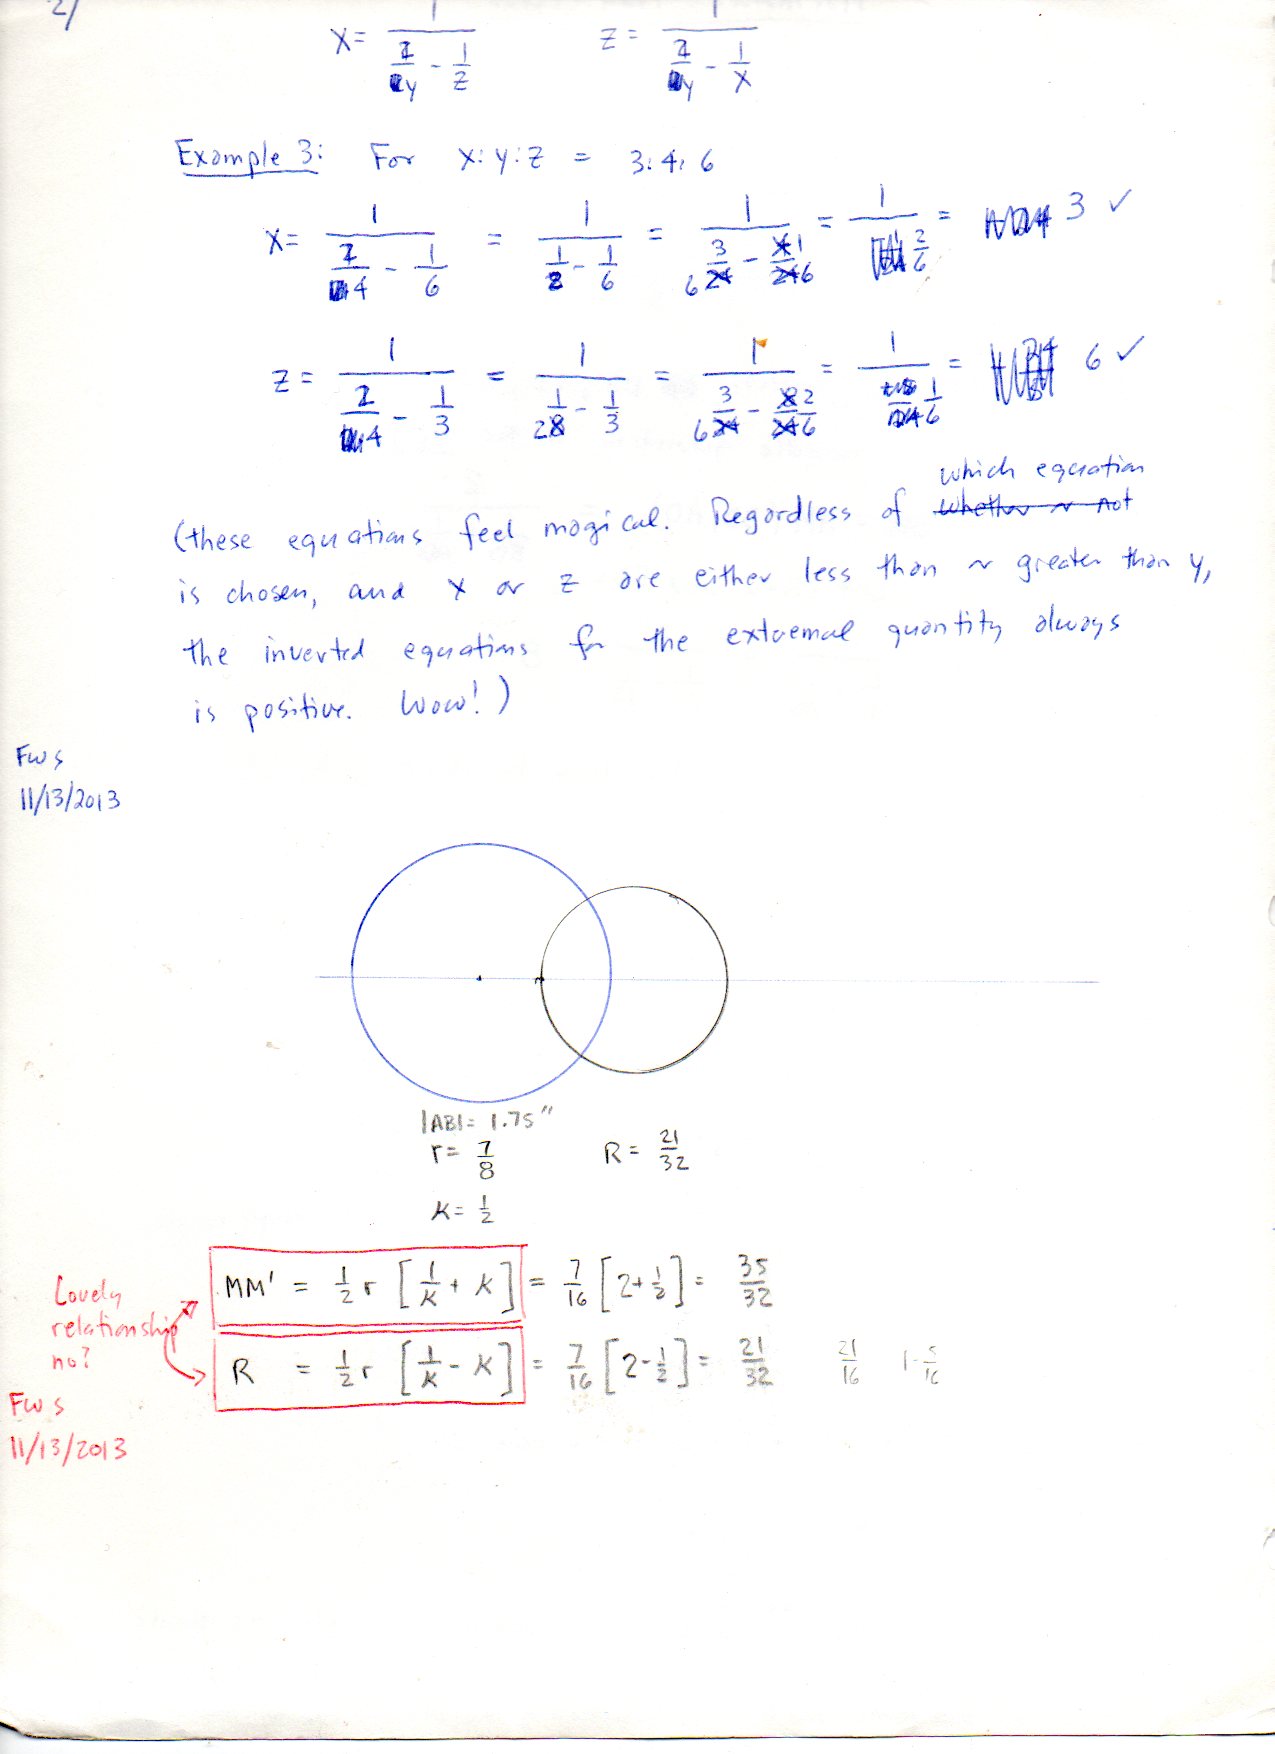 2/
x = 1 / (2/y - 1/z)    z = 1 / (2/y - 1/x)
Example 3: For x:y:z = 3:4:6
x = 1 / (2/4 - 1/6) = 1 / (1/2 - 1/6) = 1 / (3/6 - 1/6) = 1 / (2/6) = 3 ✓
z = 1 / (2/4 - 1/3) = 1 / (1/2 - 1/3) = 1 / (3/6 - 2/6) = 1 / (1/6) = 6 ✓
which equation
(these equations feel magical. Regardless of whether or not
is chosen, and x or z are either less than or greater than y,
the inverted equations for the extremal quantity always
is positive. Wow!)
FWS
11/13/2013
|AB| = 1.75"
r = 7/8    R = 21/32
K = 1/2
MM' = 1/2 r [1/K + K] = 7/16 [2 + 1/2] = 35/32
Lovely
relationship
no?
R = 1/2 r [1/K - K] = 7/16 [2 - 1/2] = 21/32    21/16    1-5/16
FWS
11/13/2013